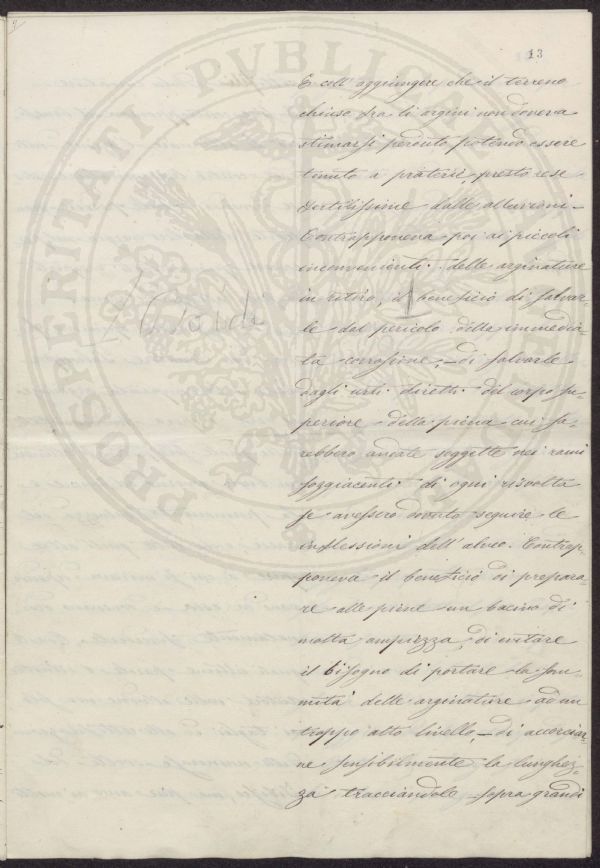 9
13
PROSPERITATI PUBLICAE
E coll' aggiungere che il terreno
chiuso fra li argini non doveva
stimarsi perduto potendo essere
tenuto a praterie, presto rese
fertilissime dalle alluvioni –
Contrapponeva poi ai piccoli
inconvenienti delle arginature
in ritiro, il beneficio di salvar-
le dal pericolo della immedia-
ta corrosione, – di salvarle
dagli urti diretti del corpo su-
periore della piena cui sa-
rebbero andate soggette nei rami
soggiacenti di ogni risvolta
se avessero dovuto seguire le
inflessioni dell' alveo. Contrap-
poneva il beneficio di prepara-
re alle piene un bacino di
molta ampiezza, di evitare
il bisogno di portare la som-
mità delle arginature ad un
troppo alto livello, – di accorciar-
ne sensibilmente la lunghez-
za tracciandole sopra grandi